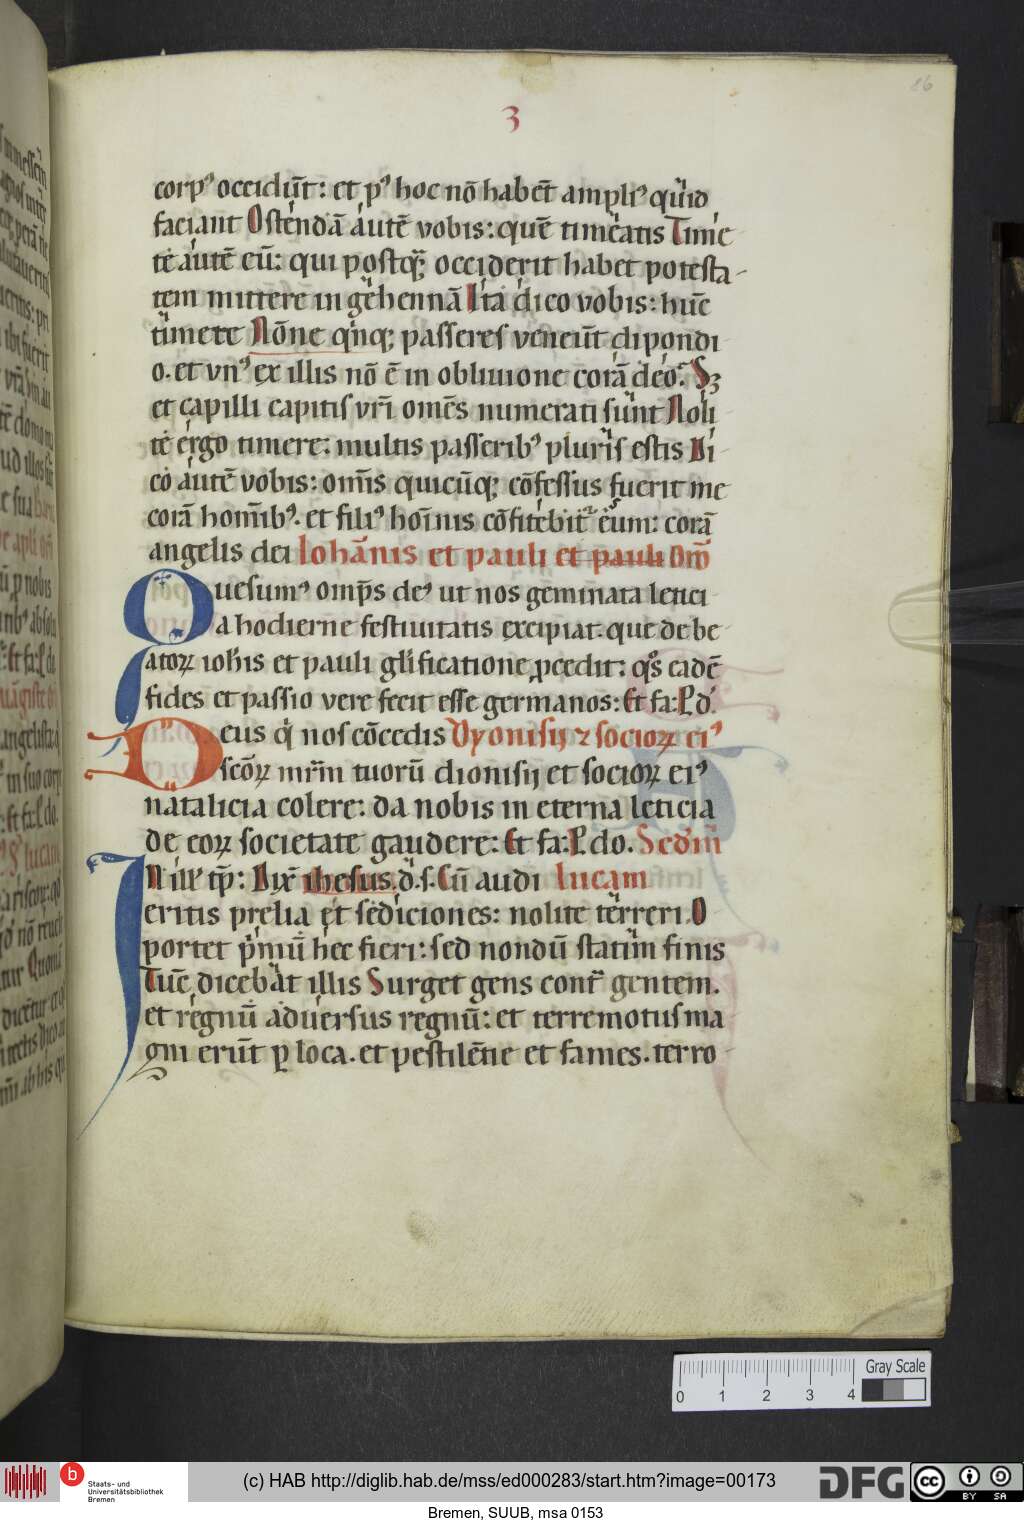 86
3
corpꝰ occidūt: et pꝰ hoc nō habēt ampliꝰ quid
faciant Ostendā autē vobis: quē timeatis Time
te autē eū: qui postqȝ occiderit habet potesta-
tem mittere in gehennā Ita dico vobis: hūc
timete Nōne qinqȝ passeres veneūt dipondi
o. et vnꝰ ex illis nō ē in obliuione corā deo. Sȝ
et capilli capitis vr̄i om̄es numerati sunt Noli
te ergo timere: multis passeribꝰ pluris estis Di
co autē vobis: om̄is quicūqȝ cōfessus fuerit me
corā hom̄ibꝰ. et filiꝰ hōinis cōfitebit᷑ eum: corā
angelis dei Iohānis et pauli et pauli Om̄
Quesumꝰ omp̄s deꝰ ut nos geminata letici
a hodierne festiuitatis excipiat. que de be
atoꝝ ioh̄is et pauli gl̄ificatione ꝓcedit: qͦs eadē
fides et passio vere fecit esse germanos: Et fa: P. d.
Deus qi nos cōcedis Dyonisij ⁊ socioꝝ eiꝰ
scōꝝ mr̄m tuorū dionisij et socioꝝ eiꝰ
natalicia colere: da nobis in eterna leticia
de eoꝝ societate gaudere: Et fa: P. do. Sed'm
In ill' tp̄: Dix̄ ihesus. d. s. Cū audi lucam
eritis prelia et sediciones: nolite terreri. O
portet pͥmū hec fieri: sed nondū statim finis
Tūc dicebat illis Surget gens contͣ gentem.
et regnū aduersus regnū: et terremotus ma
gni erūt ꝑ loca. et pestilētie et fames. terro
Gray Scale
0 1 2 3 4
b
Staats- und
Universitätsbibliothek
Bremen
(c) HAB http://diglib.hab.de/mss/ed000283/start.htm?image=00173
DFG
cc BY SA
Bremen, SUUB, msa 0153